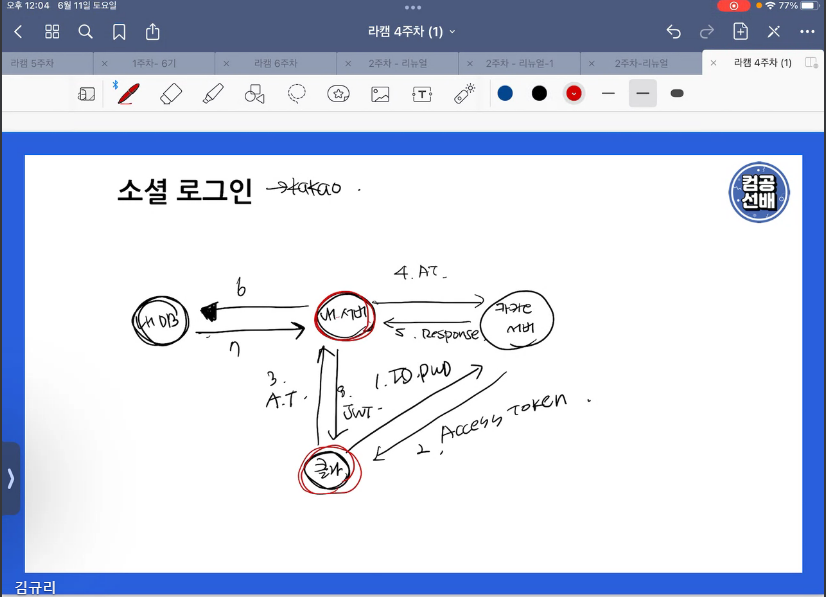 오후 12:04 6월 11일 토요일
77%
라캠 4주차 (1)
라캠 5주차
1주차- 6기
라캠 6주차
2주차 - 리뉴얼
2주차 - 리뉴얼-1
2주차-리뉴얼
라캠 4주차 (1)
소셜 로그인 → kakao .
컴공
선배
4. AT.
6
내 DB
내 서버
카카오
서버
5. Response.
7
3.
A.T.
8.
JWT-
1. ID.PWD
2. Access Token .
클라
김규리